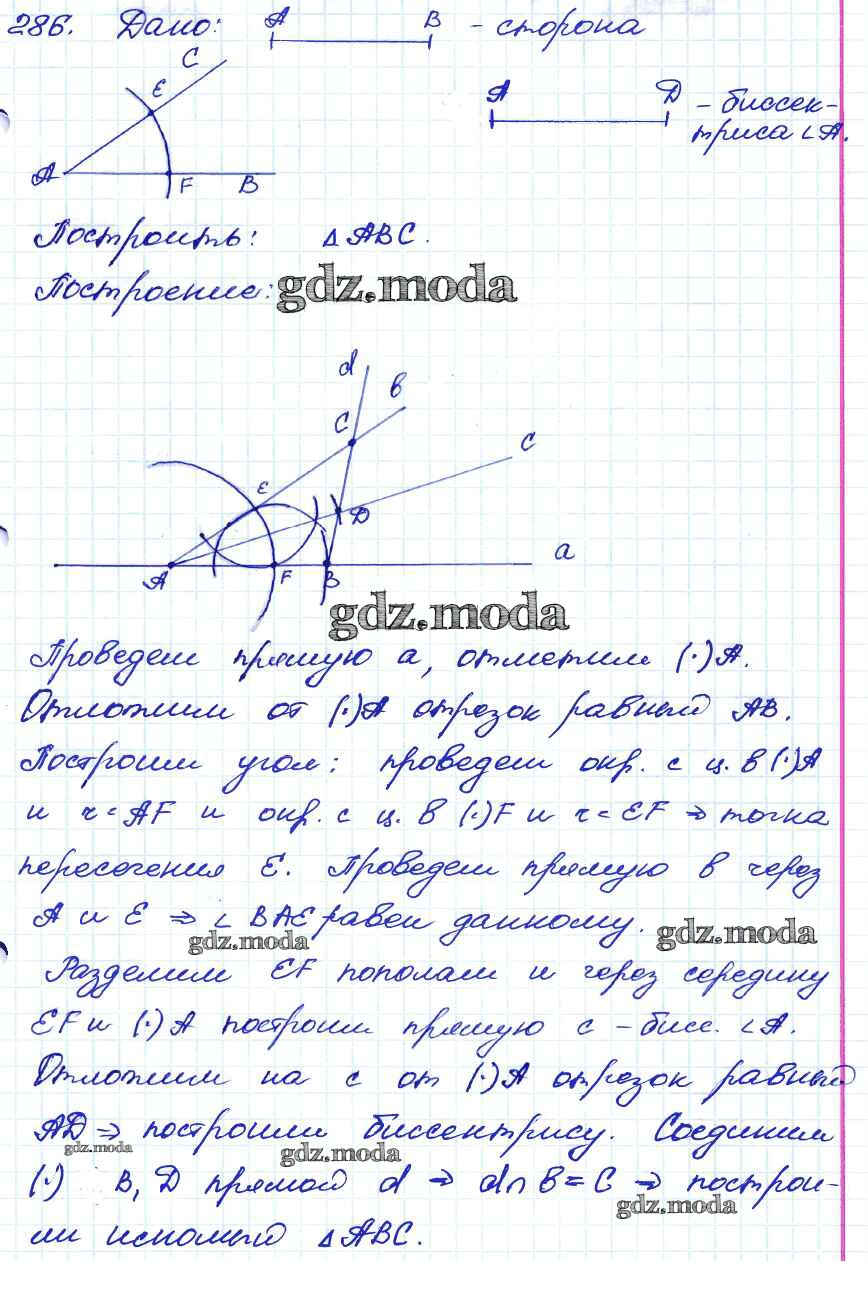 286. Дано: A B - сторона
C
E
A F B
A D - биссек-
триса ∠A.
Построить: △ABC.
Построение:
gdz.moda
d
b
C
c
E
D
a
A F B
gdz.moda
Проведем прямую a, отметим (·)A.
Отложим от (·)A отрезок равный AB.
Построим угол: проведем окр. с ц. в (·)A
и r=AF и окр. с ц. в (·)F и r=EF ⇒ точка
пересечения E. Проведем прямую b через
A и E ⇒ ∠BAE равен данному.
gdz.moda gdz.moda
Разделим EF пополам и через середину
EF и (·)A построим прямую c - бисс. ∠A.
Отложим на c от (·)A отрезок равный
AD ⇒ построили биссектрису. Соединим
gdz.moda gdz.moda
(·) B, D прямой d ⇒ d∩b=C ⇒ построи-
gdz.moda
ли искомый △ABC.